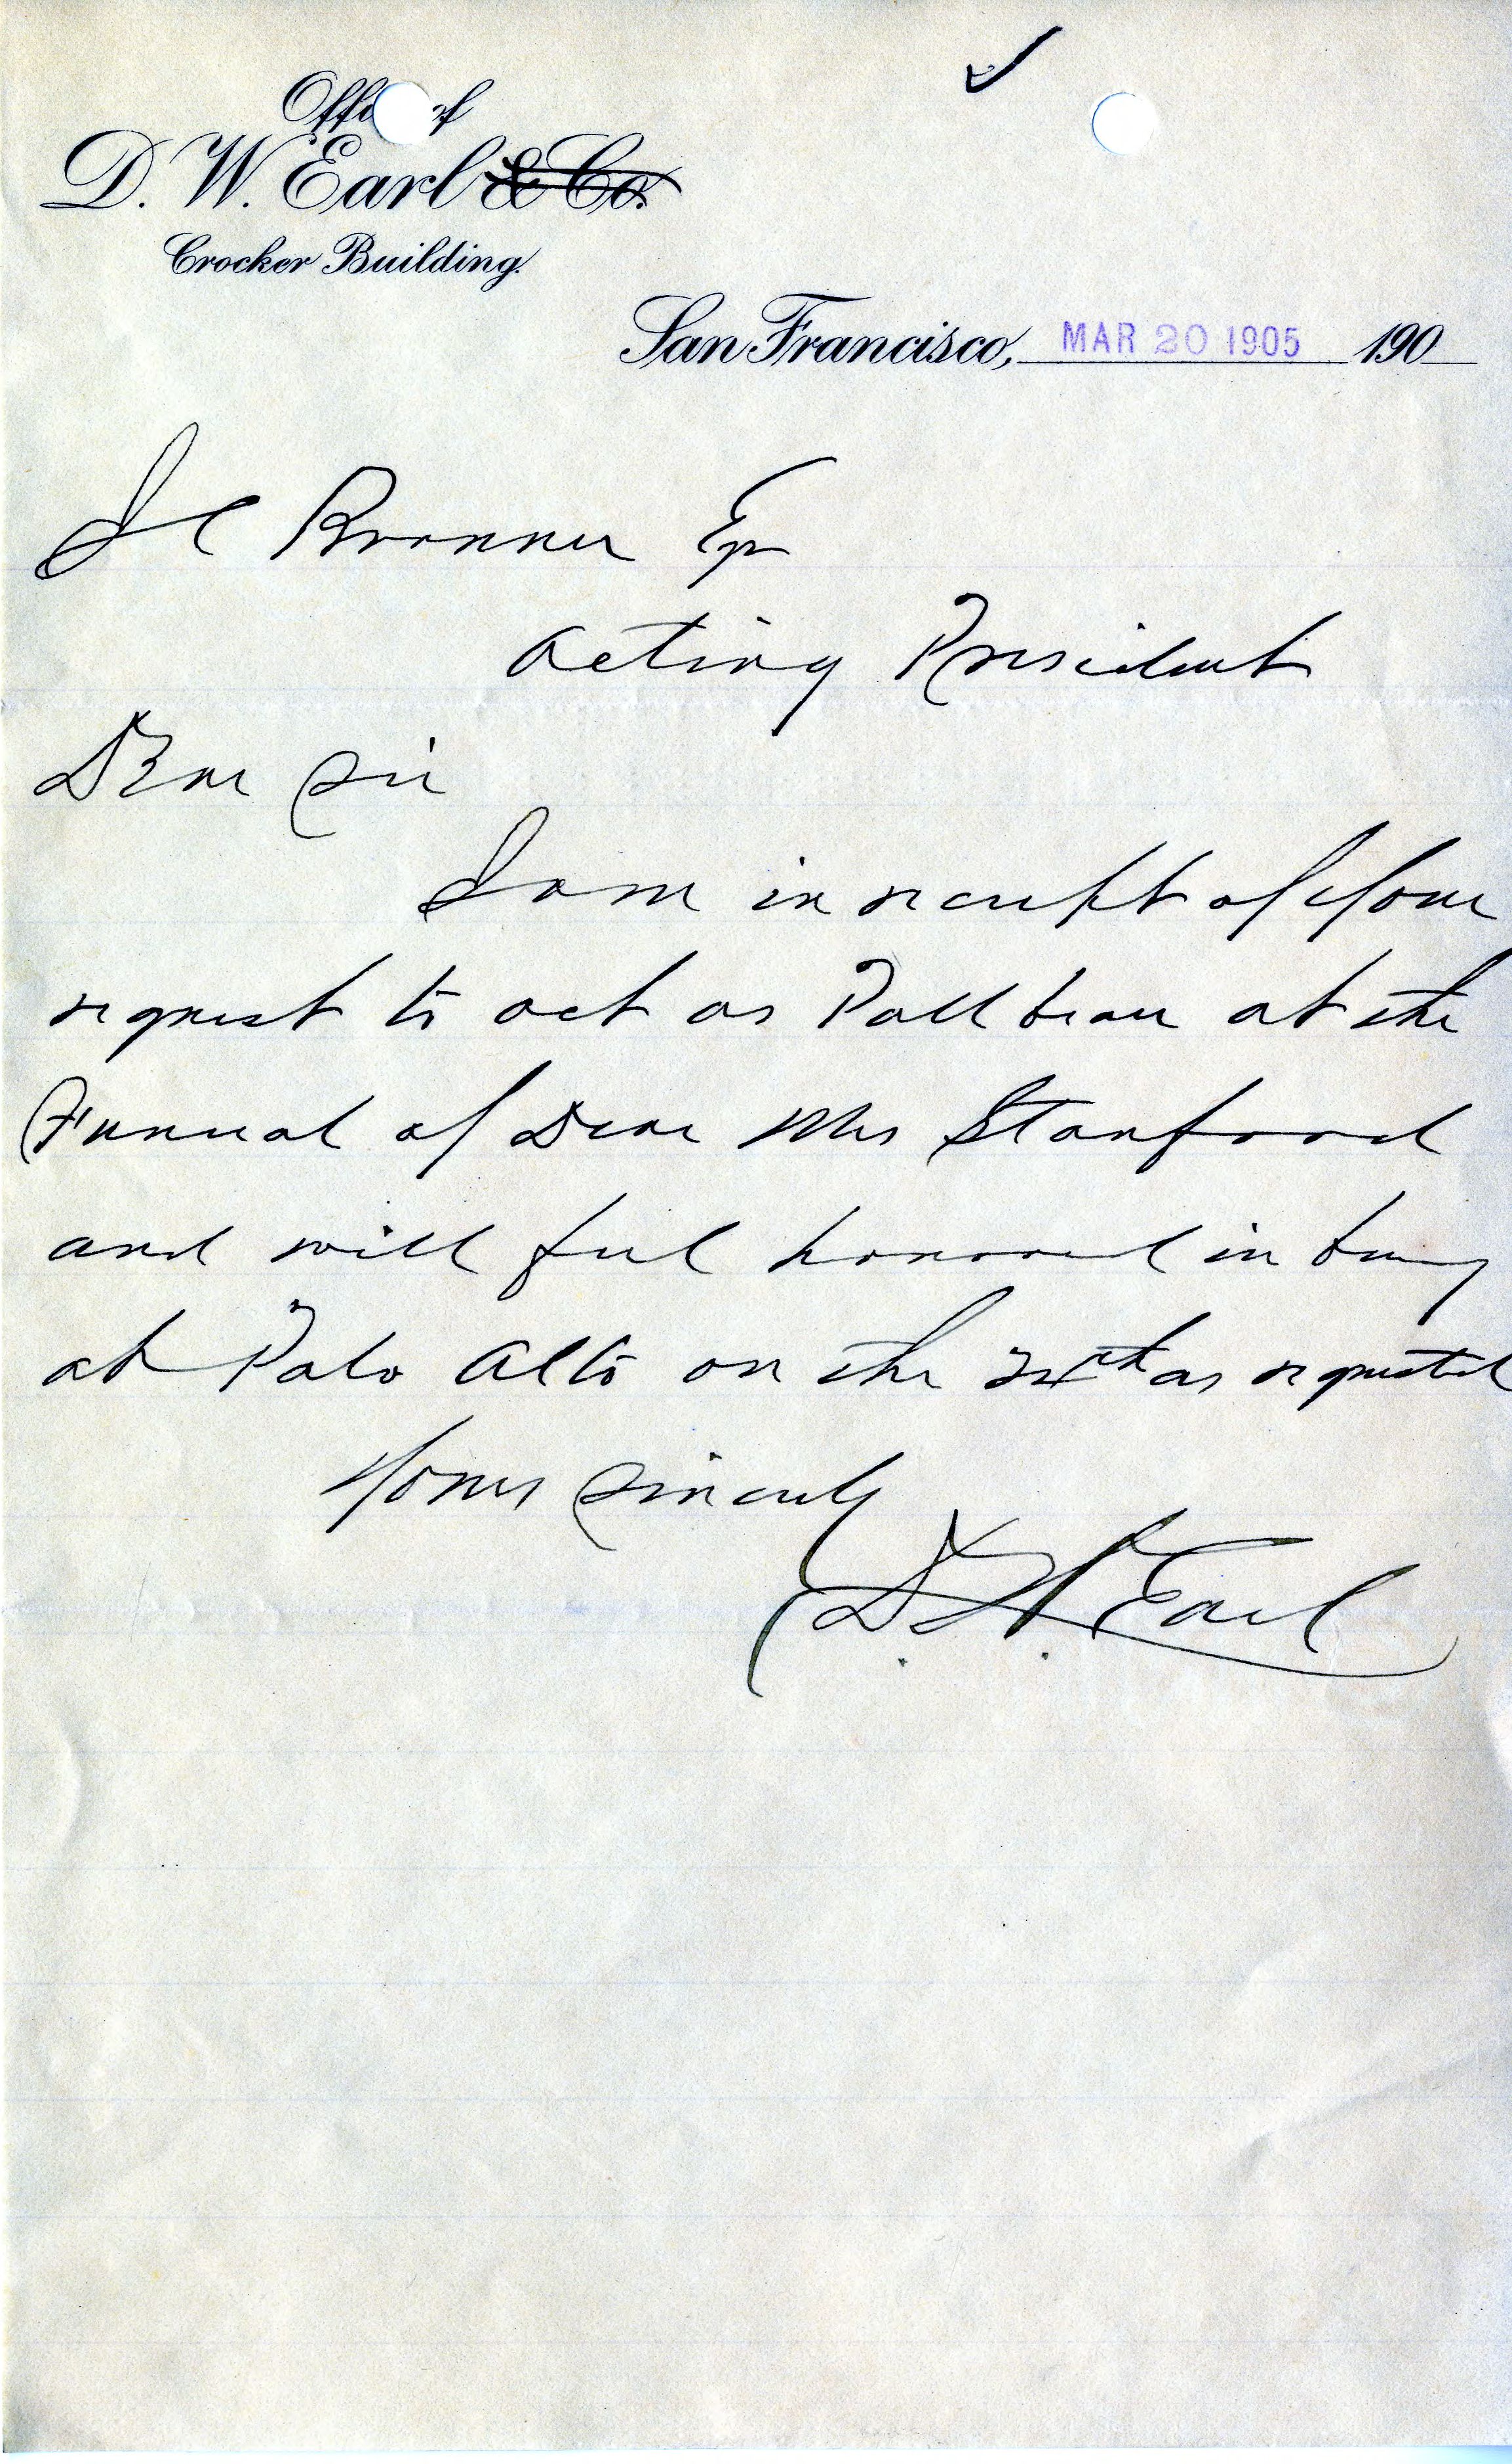 Office of
D. W. Earl & Co.
Crocker Building.
San Francisco, MAR 20 1905 190
J C Branner Esq
Acting President
Dear Sir
I am in receipt of your
request to act as Pall bearer at the
Funeral of Dear Mrs Stanford
and will feel honored in being
at Palo Alto on the as requested
Yours Sincerely
D. W. Earl